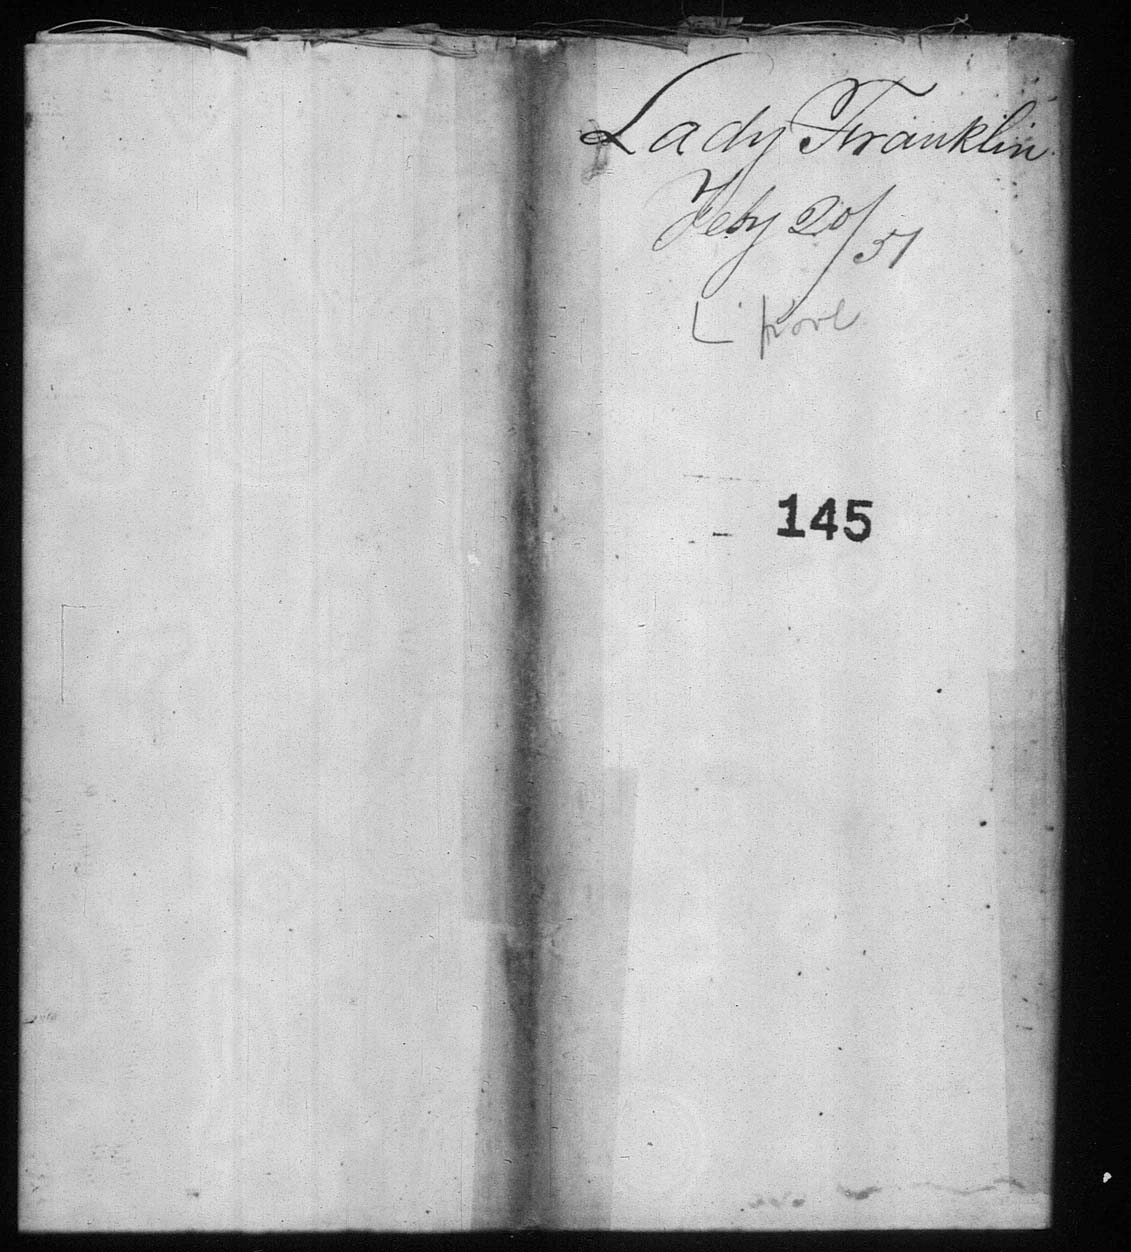 Lady Franklin
Feby 20/51
L'pool
145